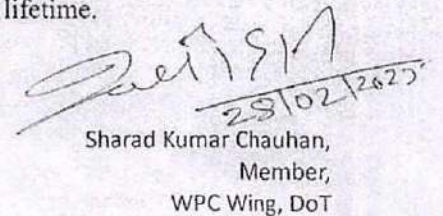 lifetime.
28/02/2025
Sharad Kumar Chauhan,
Member,
WPC Wing, DoT